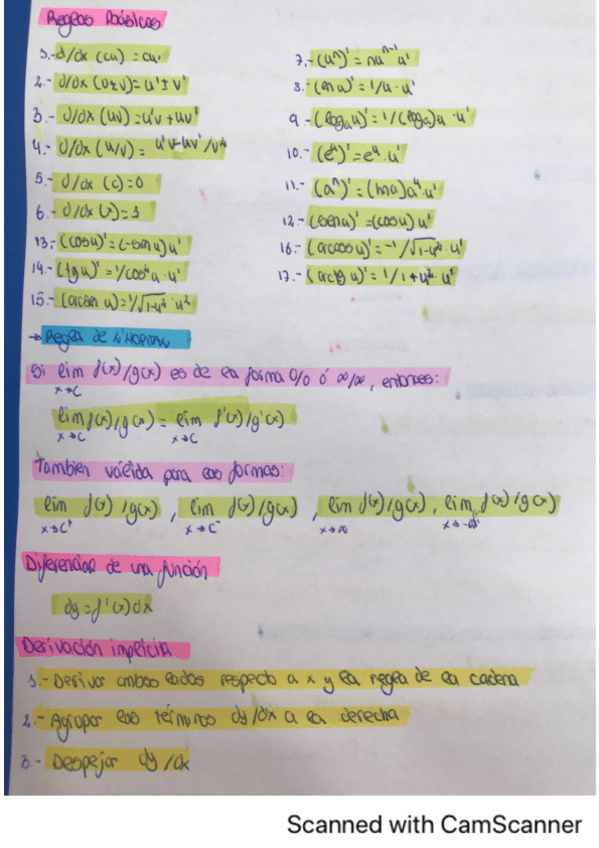 Reglas Básicas
1.- d/dx (cu) = cu'
2.- d/dx (u±v) = u' ± v'
3.- d/dx (uv) = u'v + uv'
4.- d/dx (u/v) = u'v-uv'/v²
5.- d/dx (c) = 0
6.- d/dx (x) = 1
13.- (cosu)' = (-senu)u'
14.- (tgu)' = 1/cos²u · u'
15.- (arcsen u)' = 1/√1-u² · u²
7.- (uⁿ)' = nuⁿ⁻¹ u'
8.- (ln u)' = 1/u · u'
9.- (logₐu)' = 1/(logₐ)u · u'
10.- (eᵘ)' = eᵘ · u'
11.- (aᵘ)' = (lna)aᵘ · u'
12.- (senu)' = (cosu)u'
16.- (arccosu)' = -1/√1-u² · u'
17.- (arctg u)' = 1/1+u² · u'
→ Regla de L'HOPITAL
Si lim f(x)/g(x) es de la forma 0/0 ó ∞/∞, entonces:
x→c
lim f(x)/g(x) = lim f'(x)/g'(x)
x→c x→c
Tambien válida para las formas:
lim f(x)/g(x), lim f(x)/g(x), lim f(x)/g(x), lim f(x)/g(x)
x→c⁺ x→c⁻ x→∞ x→-∞
Diferencial de una función
dy = f'(x)dx
Derivación implícita
1.- Derivar ambos lados respecto a x y la regla de la cadena
2.- Agrupar los términos dy/dx a la derecha
3.- Despejar dy/dx
Scanned with CamScanner